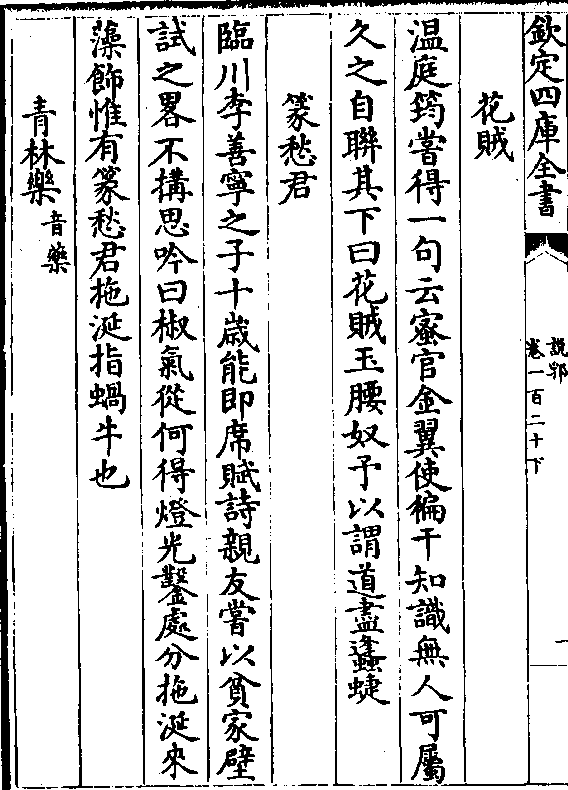 欽定四庫全書
說郛
卷一百二十下
一
花賊
溫庭筠嘗得一句云蜜官金翼使徧干知識無人可屬
久之自聯其下曰花賊玉腰奴予以謂道盡蠭蜨
篆愁君
臨川李善寧之子十歲能即席賦詩親友嘗以貧家壁
試之畧不搆思吟曰椒氣從何得燈光鑿處分拖涎來
藻飾惟有篆愁君拖涎指蝸牛也
青林樂音藥